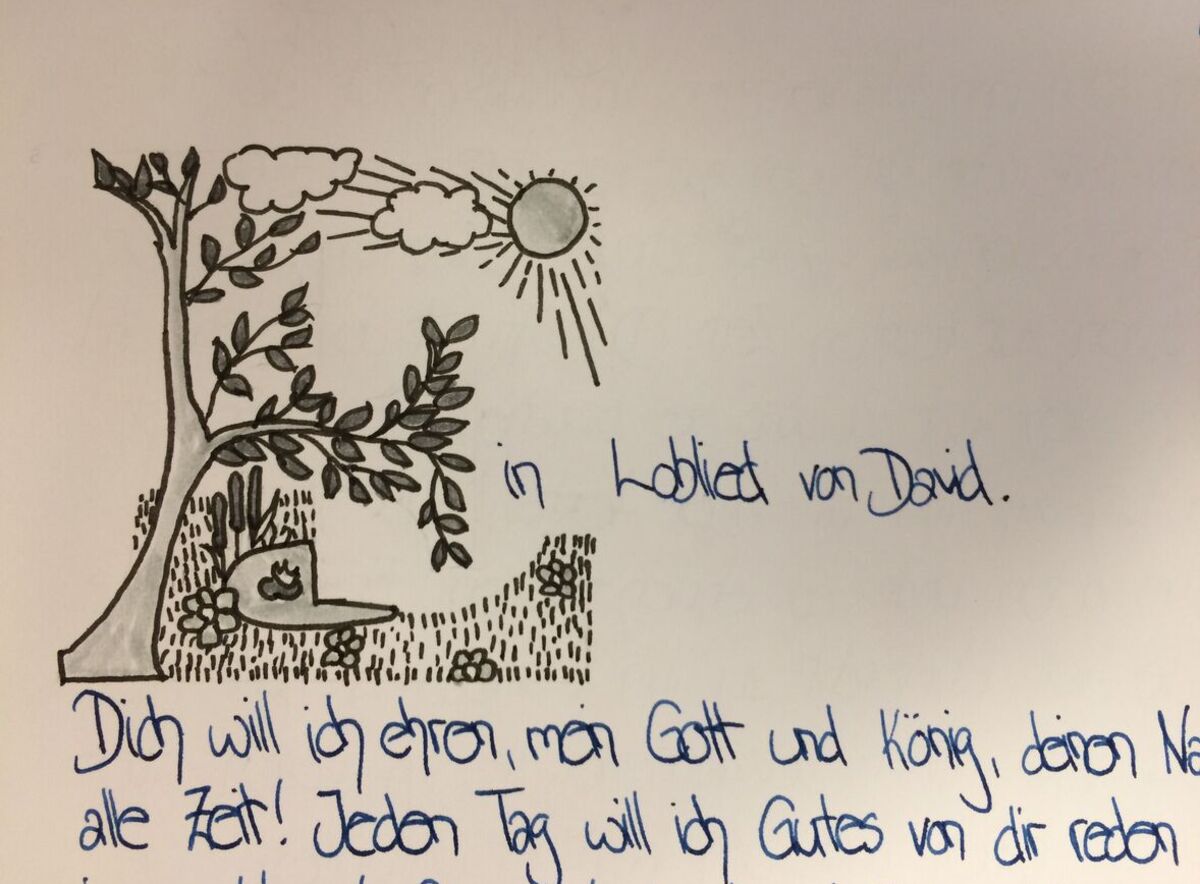 Ein Loblied von David.
Dich will ich ehren, mein Gott und König, deinen
alle Zeit! Jeden Tag will ich Gutes von dir reden